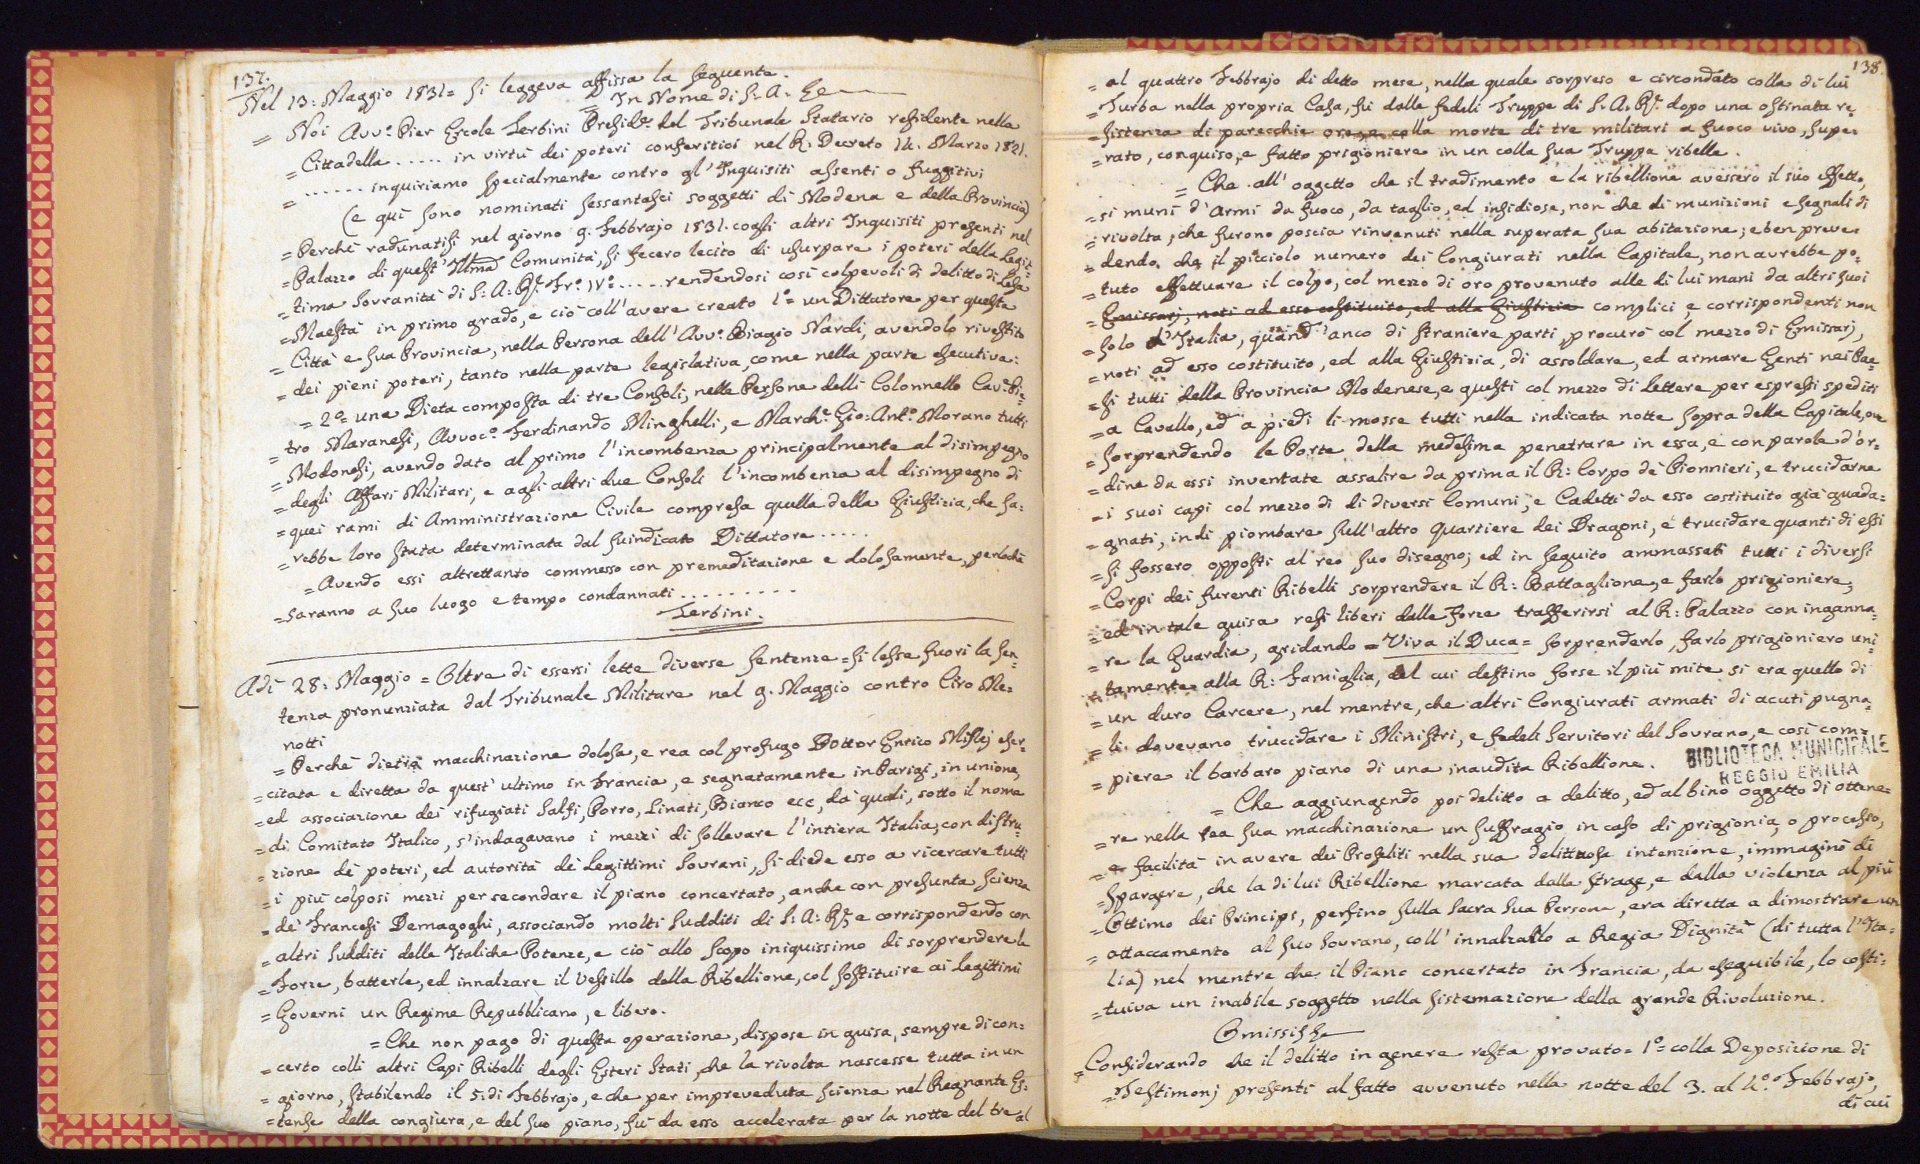 137.
Nel 13: Maggio 1831= si leggeva affissa la seguente.
= In Nome di S. A. &c
= Noi Avv.o Pier Ercole Zerbini Presid.e del Tribunale Statario residente nella
= Cittadella ..... in virtù dei poteri conferitici nel R. Decreto 14. Marzo 1821.
= ...... inquiriamo specialmente contro gl'Inquisiti assenti o fuggitivi
(e quì sono nominati sessantasei soggetti di Modena e della Provincia)
= Perchè radunatisi nel giorno 9. Febbrajo 1831. cogli altri Inquisiti presenti nel
= Palazzo di quest' Ill.ma Comunità, si fecero lecito di usurpare i poteri della Legit-
= tima Sovranità di S: A: R.e Fr.o IV.o ..... rendendosi così colpevoli di delitto di Lesa
= Maestà in primo grado, e ciò coll'avere creato 1.o= un Dittatore per questa
= Città e sua Provincia, nella Persona dell'Avv.o Biagio Nardi, avendolo rivestito
= dei pieni poteri, tanto nella parte legislativa, come nella parte esecutiva:
= 2.o= una Dieta composta di tre Consoli, nelle Persone delli Colonnello Cav.e Pie-
= tro Maranesi, Avvoc.o Ferdinando Minghelli, e March.e Gio: Ant.o Morano tutti
= Modonesi, avendo dato al primo l'incombenza principalmente al disimpegno
= degli Affari Militari, e agli altri due Consoli l'incombenza al disimpegno di
= quei rami di Amministrazione Civile compresa quella della Giustizia, che sa-
= rebbe loro stata determinata dal suindicato Dittatore .....
= Avendo essi altrettanto commesso con premeditazione e dolosamente, perlochè
= saranno a suo luogo e tempo condannati .........
Zerbini.
Adi 28: Maggio = Oltre di essersi lette diverse sentenze = si lesse fuori la sen-
tenza pronunziata dal Tribunale Militare nel 9. Maggio contro Ciro Me-
notti
= Perchè dietro macchinazione dolosa, e rea col profugo Dottor Enrico Misley eser-
= citata e diretta da quest'ultimo in Francia, e segnatamente in Parigi, in unione,
= ed associazione dei rifugiati Salfi, Porro, Linati, Bianco ecc, da quali, sotto il nome
= di Comitato Italico, s'indagavano i mezzi di sollevare l'intiera Italia, con distru-
= zione de' poteri, ed autorità de' Legittimi Sovrani, si diede esso a ricercare tutti
= i più colposi mezzi per secondare il piano concertato, anche con presunta scienza
= de' Francesi Demagoghi, associando molti sudditi di S: A: R.e, e corrispondendo con
= altri sudditi delle Italiche Potenze, e ciò allo scopo iniquissimo di sorprendere le
= Forze, batterle, ed innalzare il Vessillo della Ribellione, col sostituire ai Legittimi
= Governi un Regime Repubblicano, e libero.
= Che non pago di questa operazione, dispose in guisa, sempre di con-
= certo colli altri Capi Ribelli degli Esteri Stati, che la rivolta nascesse tutta in un
= giorno, stabilendo il 5. di Febbrajo, e che per impreveduta scienza nel Regnante Es-
= tense della congiura, e del suo piano, fù da esso accelerata per la notte del tre al
138.
= al quattro Febbrajo di detto mese, nella quale sorpreso e circondato colla di lui
= Turba nella propria Casa, fù dalle fedeli Truppe di S. A. R.e dopo una ostinata re-
= sistenza di parecchie ore, e colla morte di tre militari a fuoco vivo, supe-
= rato, conquiso, e fatto prigioniere in un colla sua Truppa ribelle.
= Che all'oggetto che il tradimento e la ribellione avessero il suo effetto,
= si munì d'Armi da fuoco, da taglio, ed insidiose, non che di munizioni e segnali di
= rivolta, che furono poscia rinvenuti nella superata sua abitazione; e ben preve-
= dendo, che il picciolo numero dei Congiurati nella Capitale, non avrebbe po-
= tuto effettuare il colpo, col mezzo di oro provenuto alle di lui mani da altri suoi
= Emissarj, noti ad esso costituito, ed alla Giustizia complici e corrispondenti non
= solo d'Italia, quand'anco di straniere parti, procurò col mezzo di Emissarj,
= noti ad esso costituito, ed alla Giustizia, di assoldare, ed armare Genti nei Pae-
= si tutti della Provincia Modenese, e questi col mezzo di lettere per espressi spediti
= a Cavallo, ed a' piedi li mosse tutti nella indicata notte sopra della Capitale, one
= sorprendendo le Porte della medesima penetrare in essa, e con parole d'or-
= dine da essi inventate assalire da prima il R: Corpo de' Pionnieri, e trucidarne
= i suoi capi col mezzo di di diversi Comuni, e Cadetti da esso costituito già guada-
= gnati, indi piombare sull'altro Quartiere dei Dragoni, e trucidare quanti di essi
= si fossero opposti al reo suo disegno; ed in seguito ammassati tutti i diversi
= Corpi dei furenti Ribelli sorprendere il R: Battaglione, e farlo prigioniere,
= ed in tale guisa resi liberi dalle Forze trasferirsi al R: Palazzo con inganna-
= re la Guardia, gridando = Viva il Duca = sorprenderlo, farlo prigioniero uni-
= tamente alla R: Famiglia, al cui destino forse il più mite si era quello di
= un duro Carcere, nel mentre, che altri Congiurati armati di acuti pugna-
= li dovevano trucidare i Ministri, e fedeli servitori del Sovrano, e così com-
= piere il barbaro piano di una inaudita Ribellione.
BIBLIOTECA MUNICIPALE
REGGIO EMILIA
= Che aggiungendo poi delitto a delitto, ed al bino oggetto di ottene-
= re nella rea sua macchinazione un suffragio in caso di prigionia, o processo,
= e facilità in avere dei Proseliti nella sua delittuosa intenzione, immaginò di
= spargere, che la di lui Ribellione marcata dalla strage, e dalla violenza al più
= Ottimo dei Principi, perfino sulla Sacra Sua Persona, era diretta a dimostrare un
= attaccamento al suo Sovrano, coll'innalzarlo a Regia Dignità (di tutta l'Ita-
lia) nel mentre che il Piano concertato in Francia, da eseguibile, lo costi-
= tuiva un inabile soggetto nella sistemazione della grande Rivoluzione.
Omissis &c
= Considerando che il delitto in genere resta provato= 1.o= colla Deposizione di
= Testimonj presenti al fatto avvenuto nella notte del 3. al 4.o Febbrajo,
di cui